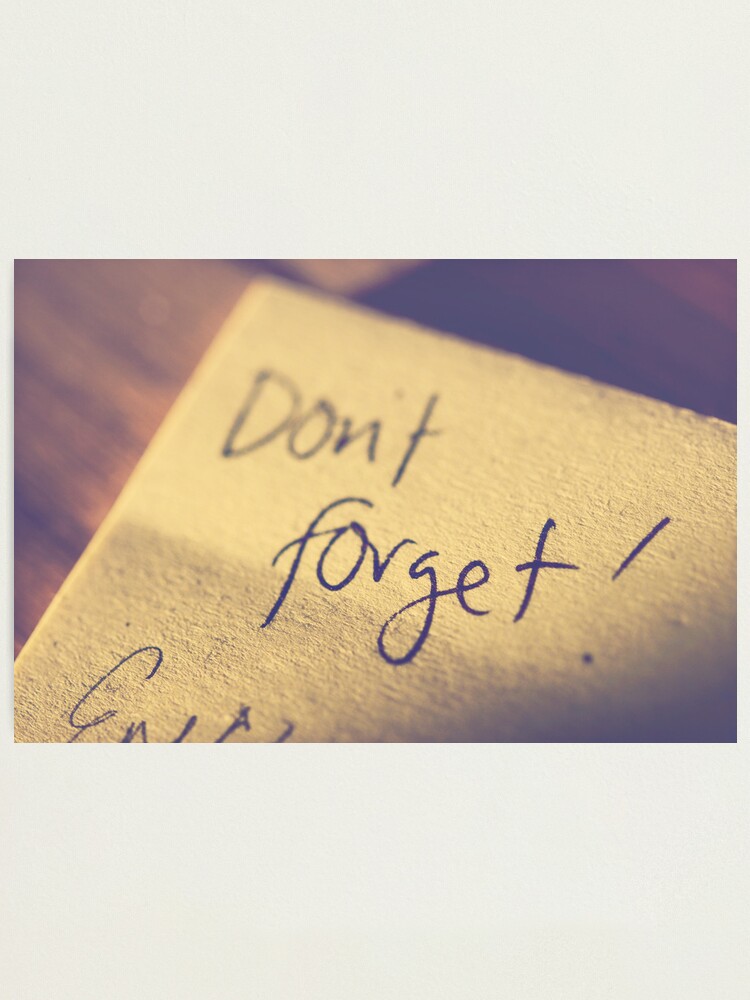 Don't
forget!